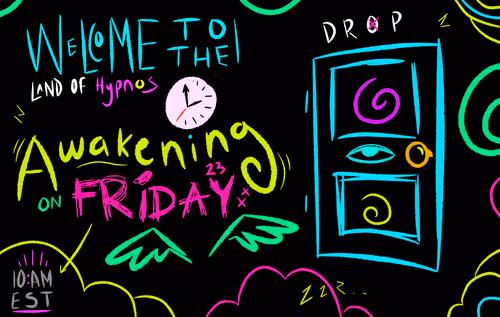 WELCOME TO
THE
LAND OF Hypnos
Awakening
ON FRiDAY 23
10:AM
EST
DROP
z
z
z z z...